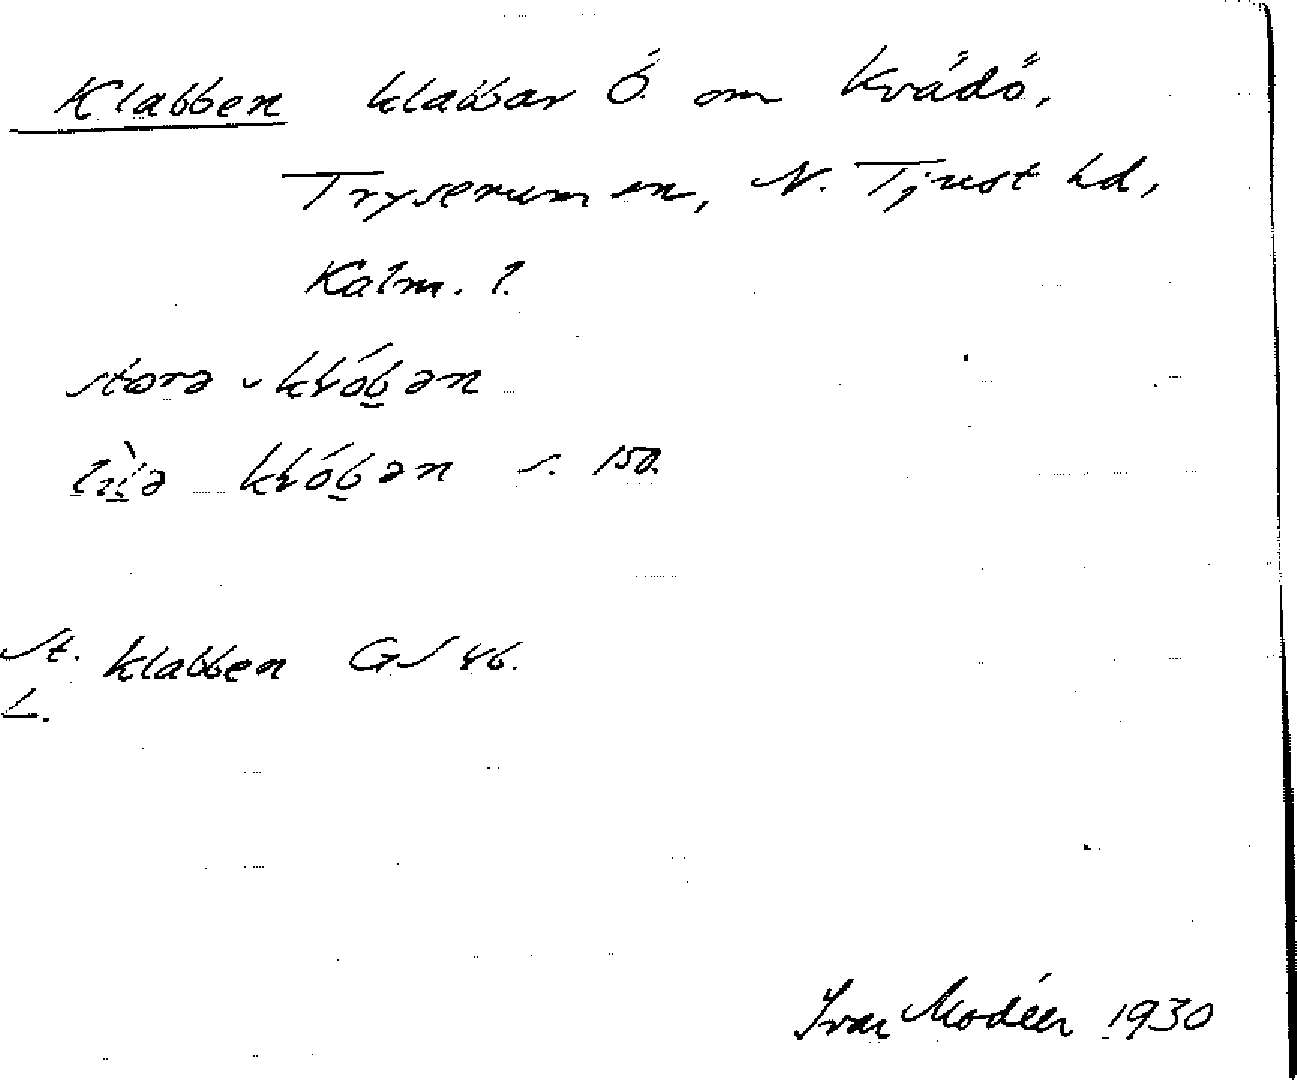 Klabben klabbar Ö. om Kvädö,
Tryserum sn, N. Tjust hd,
Kalm. l.
storə - klábən
lìlə klábən s. 150.
St. klabben GS 46.
L.
Ivar Modéer 1930